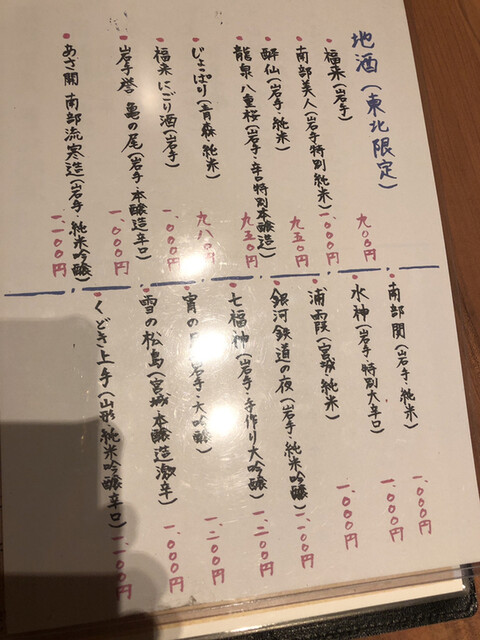 地酒(東北限定)
・福来(岩手) 九〇〇円
・南部美人(岩手特別純米) 一、〇〇〇円
・酔仙(岩手 純米) 九五〇円
・龍泉 八重桜(岩手・辛口特別本醸造) 九五〇円
・じょっぱり(青森・純米) 九八〇円
・福来 にごり酒(岩手) 一、〇〇〇円
・岩手誉 亀の尾(岩手・本醸造辛口) 一、〇〇〇円
・あさ開 南部流寒造(岩手・純米吟醸) 一、一〇〇円
・南部関(岩手・純米) 一、〇〇〇円
・水神(岩手・特別大辛口) 一、〇〇〇円
・浦霞(宮城・純米) 一、〇〇〇円
・銀河鉄道の夜(岩手・純米吟醸) 一、一〇〇円
・七福神(岩手・手作り大吟醸) 一、二〇〇円
・宵の (岩手・大吟醸) 一、二〇〇円
・雪の松島(宮城・本醸造激辛) 一、〇〇〇円
・くどき上手(山形・純米吟醸辛口) 一、一〇〇円